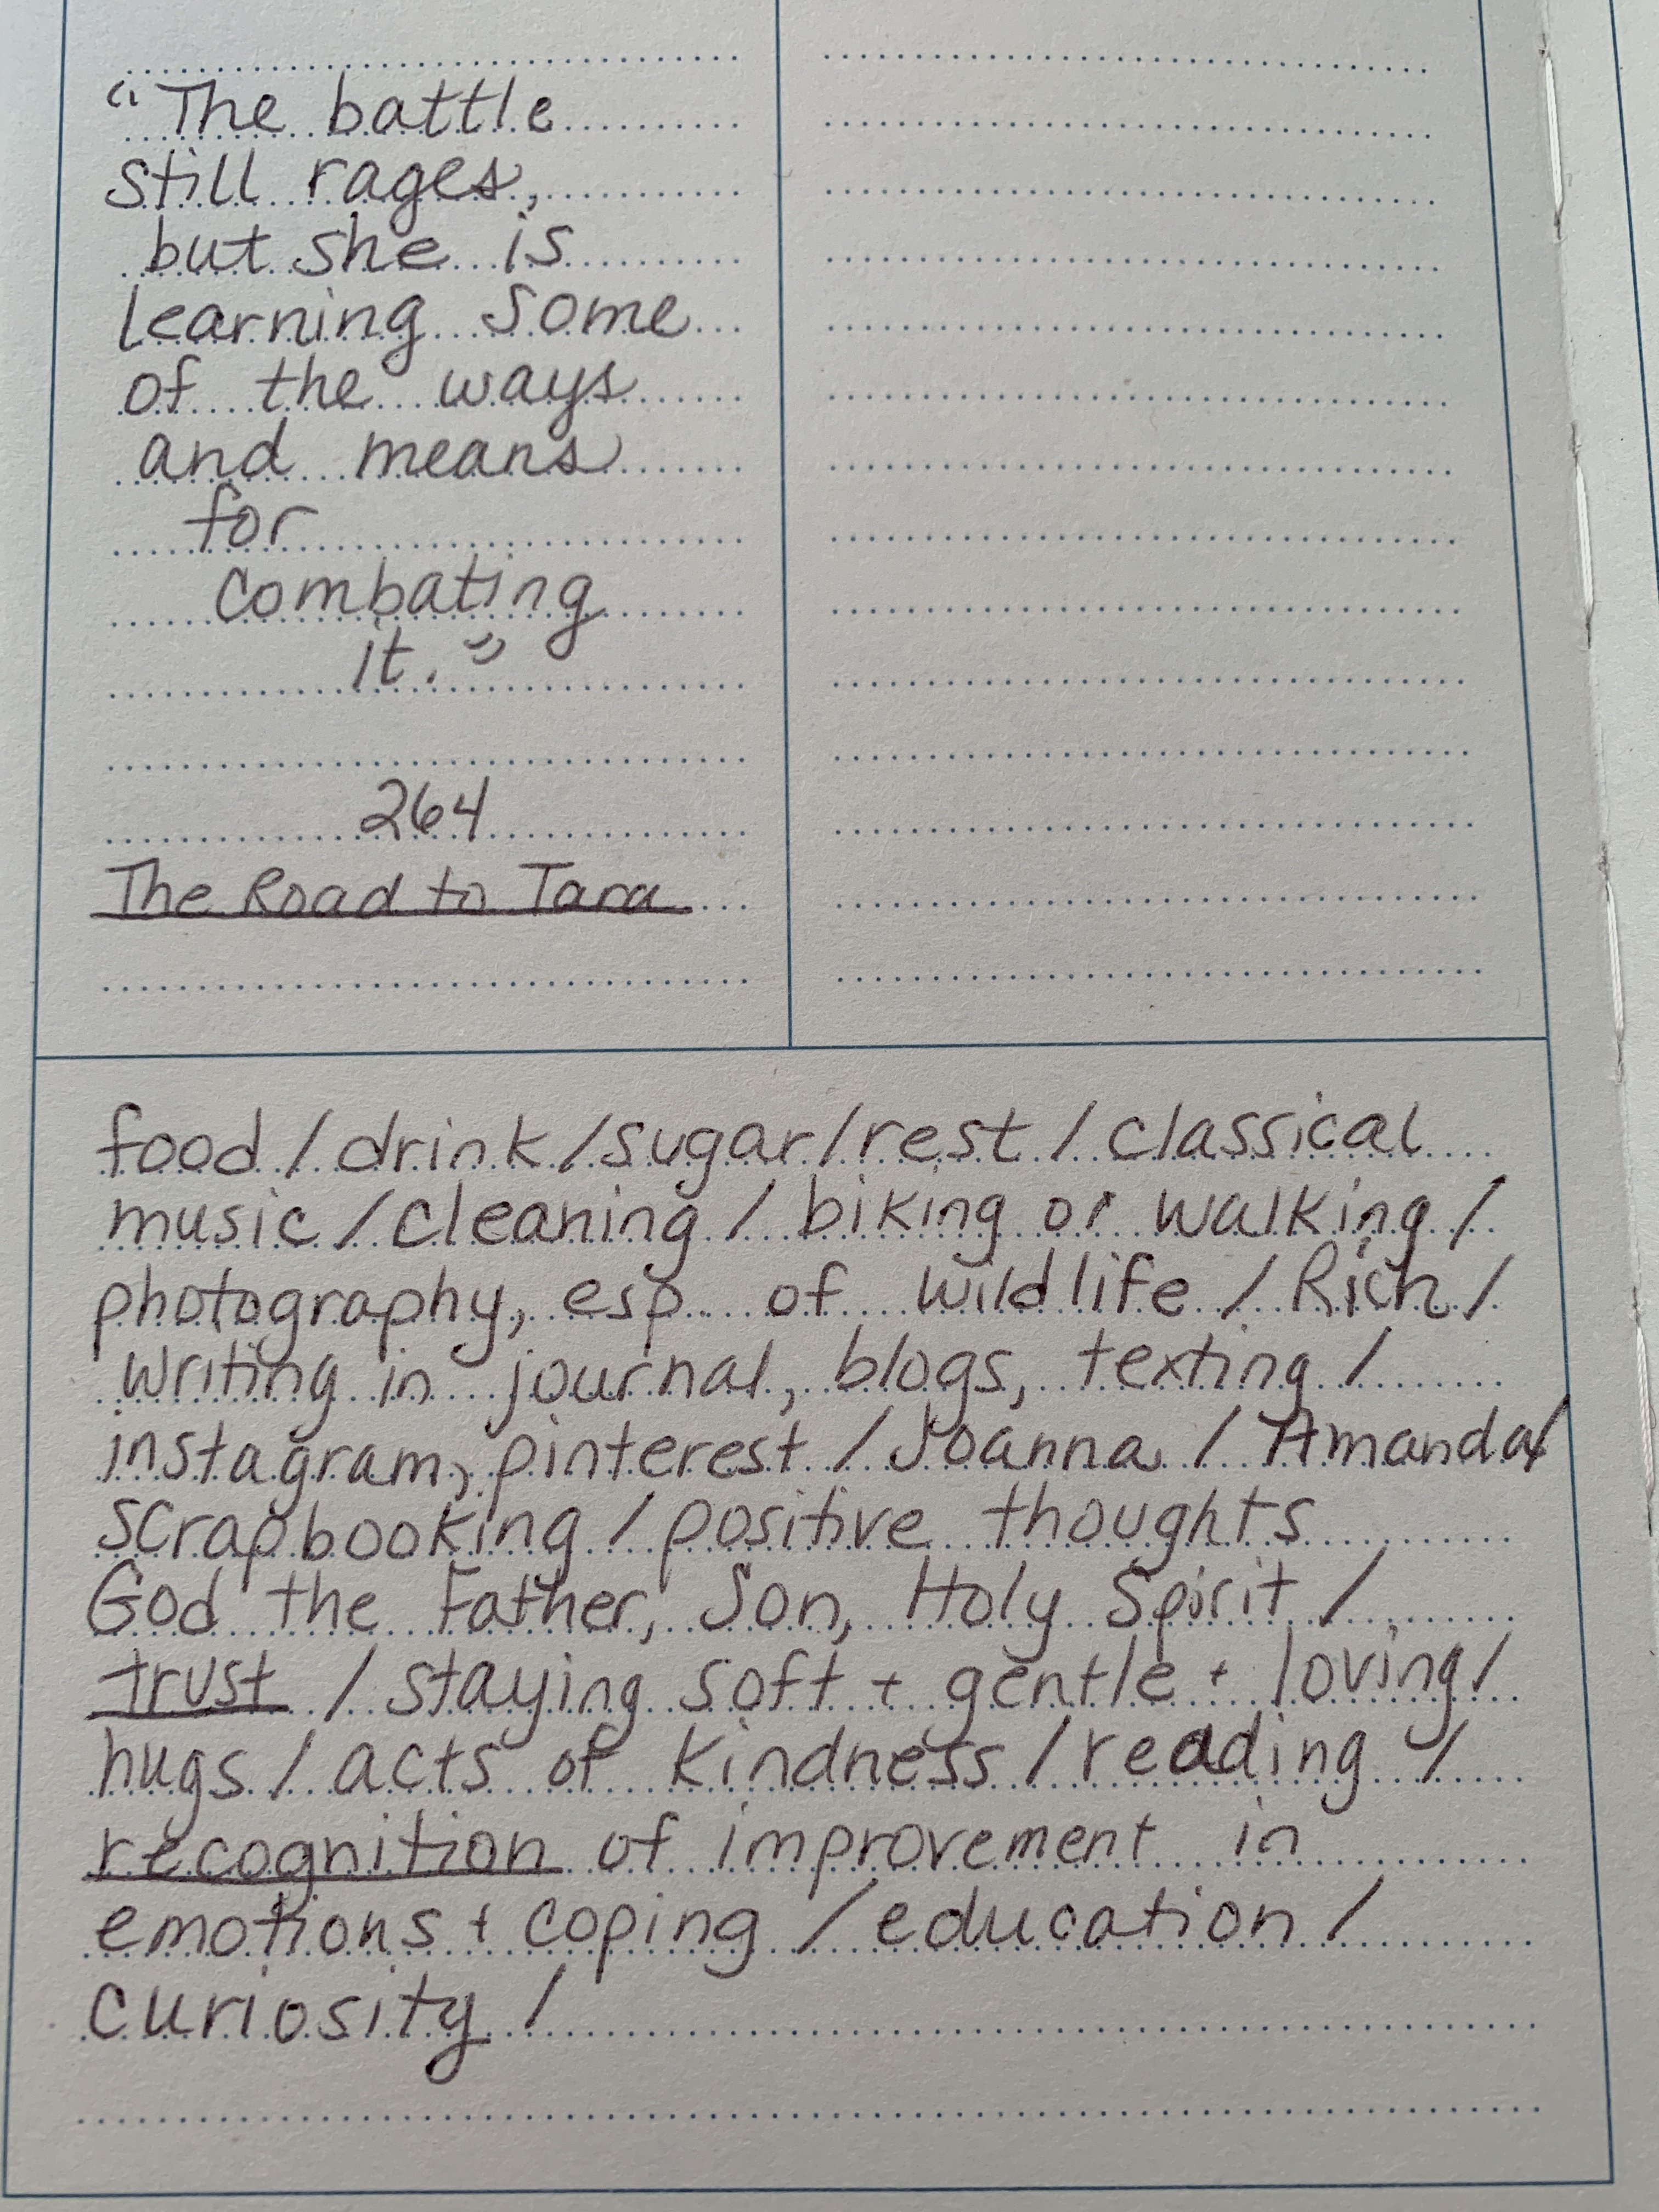 "The battle
still rages,
but she is
learning some
of the ways
and means
for
combating
it."
264
The Road to Tara
food / drink / sugar / rest / classical
music / cleaning / biking or walking /
photography, esp. of wildlife / Rich /
writing in journal, blogs, texting /
instagram, pinterest / Joanna / Amanda/
scrapbooking / positive thoughts
God the Father, Son, Holy Spirit /
trust / staying soft + gentle + loving /
hugs / acts of kindness / reading /
recognition of improvement in
emotions + coping / education /
curiosity /